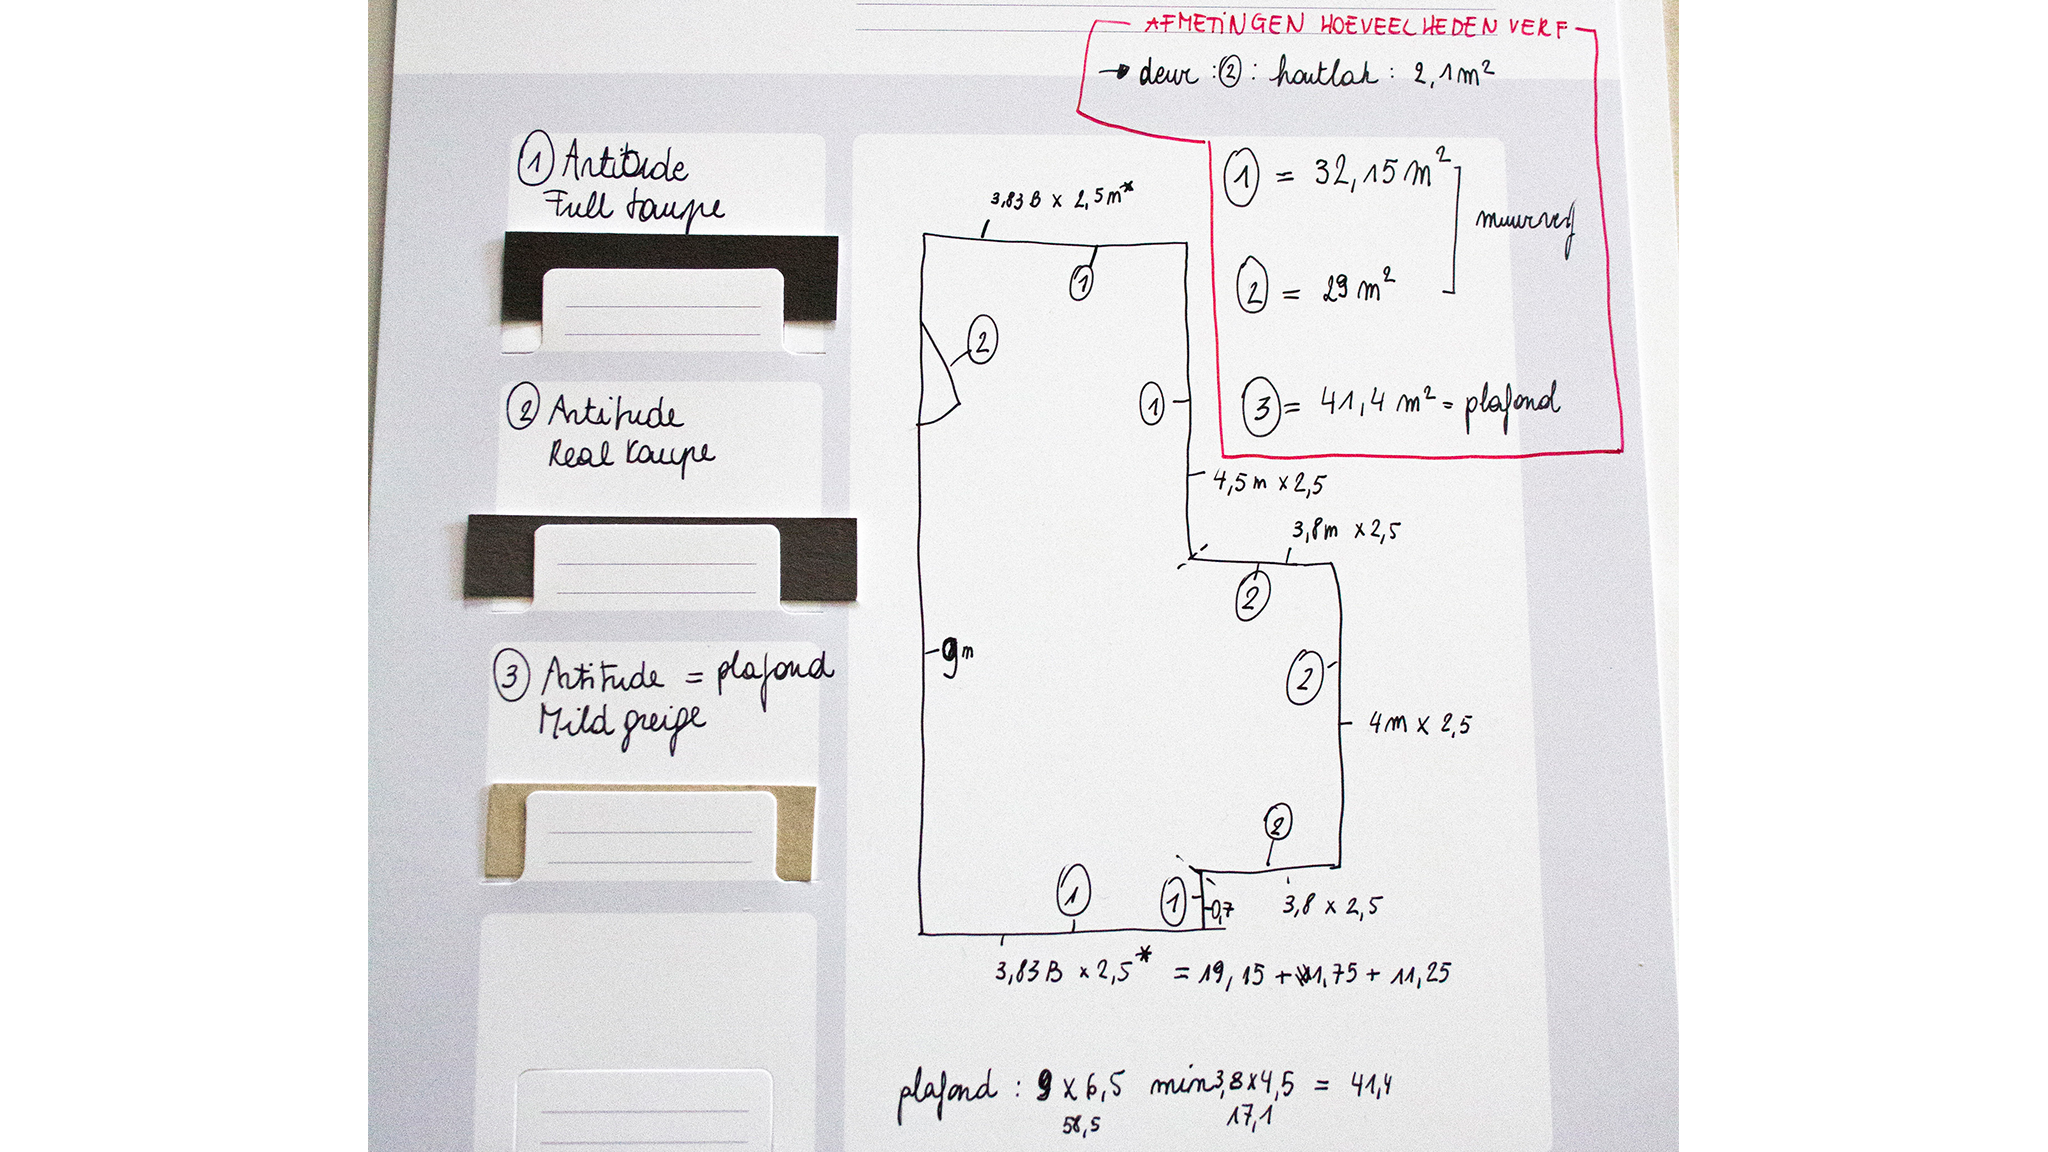 AFMETINGEN HOEVEELHEDEN VERF
→ deur : ② : houtlak : 2,1 m²
① Antitude
Full taupe
② Antitude
Real taupe
③ Antitude = plafond
Mild greige
① = 32,15 m²
② = 29 m²
muurverf
③ = 41,4 m² = plafond
3,83 B x 2,5 m*
①
②
①
4,5 m x 2,5
3,8 m x 2,5
②
9 m
②
4 m x 2,5
②
①
①
0,7
3,8 x 2,5
3,83 B x 2,5* = 19,15 + 1,75 + 11,25
plafond : 9 x 6,5 min 3,8 x 4,5 = 41,4
58,5 17,1